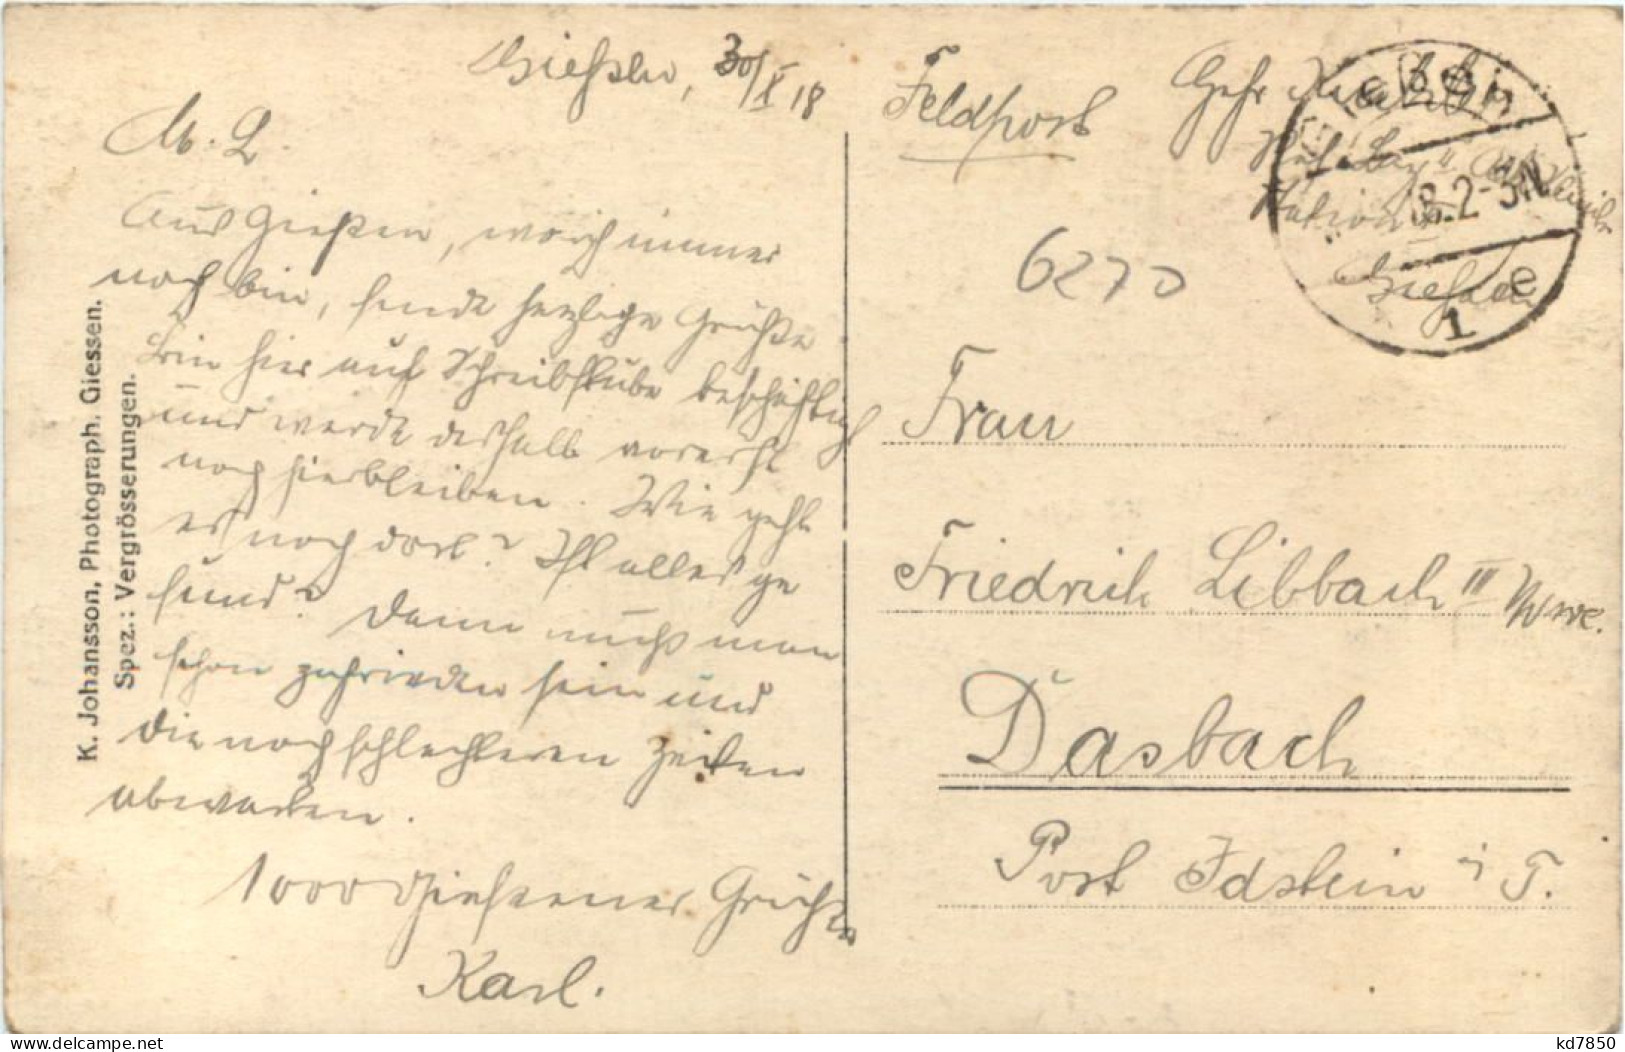 Gießen, 30/X 18
M. L.
Aus Gießen, wo ich immer
noch bin, sende herzliche Grüße
Bin hier auf Schreibstube beschäftigt
und werde deshalb vorerst
noch hierbleiben. Wie geht
es noch dort? Ist alles ge
sund? Dann muß man
schon zufrieden sein und
die noch schlechteren Zeiten
abwarten.
1000 Gießener Grüße
Karl.
K. Johansson, Photograph. Giessen.
Spez.: Vergrösserungen.
Feldpost
Gefr
Res. Laz. II
Station
Giessen
Giessen
18.2-3N
1 e
6270
Frau
Friedrich Libbach III Wwe.
Dasbach
Post Idstein i T.
kd7850